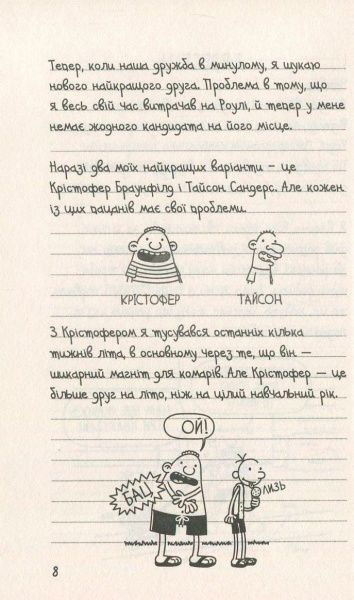 Тепер, коли наша дружба в минулому, я шукаю
нового найкращого друга. Проблема в тому, що
я весь свій час витрачав на Роулі, й тепер у мене
немає жодного кандидата на його місце.
Наразі два моїх найкращих варіанти – це
Крістофер Браунфілд і Тайсон Сандерс. Але кожен
із цих пацанів має свої проблеми.
КРІСТОФЕР
ТАЙСОН
З Крістофером я тусувався останніх кілька
тижнів літа, в основному через те, що він —
шикарний магніт для комарів. Але Крістофер – це
більше друг на літо, ніж на цілий навчальний рік.
ОЙ!
БАЦ
ЛИЗЬ
8